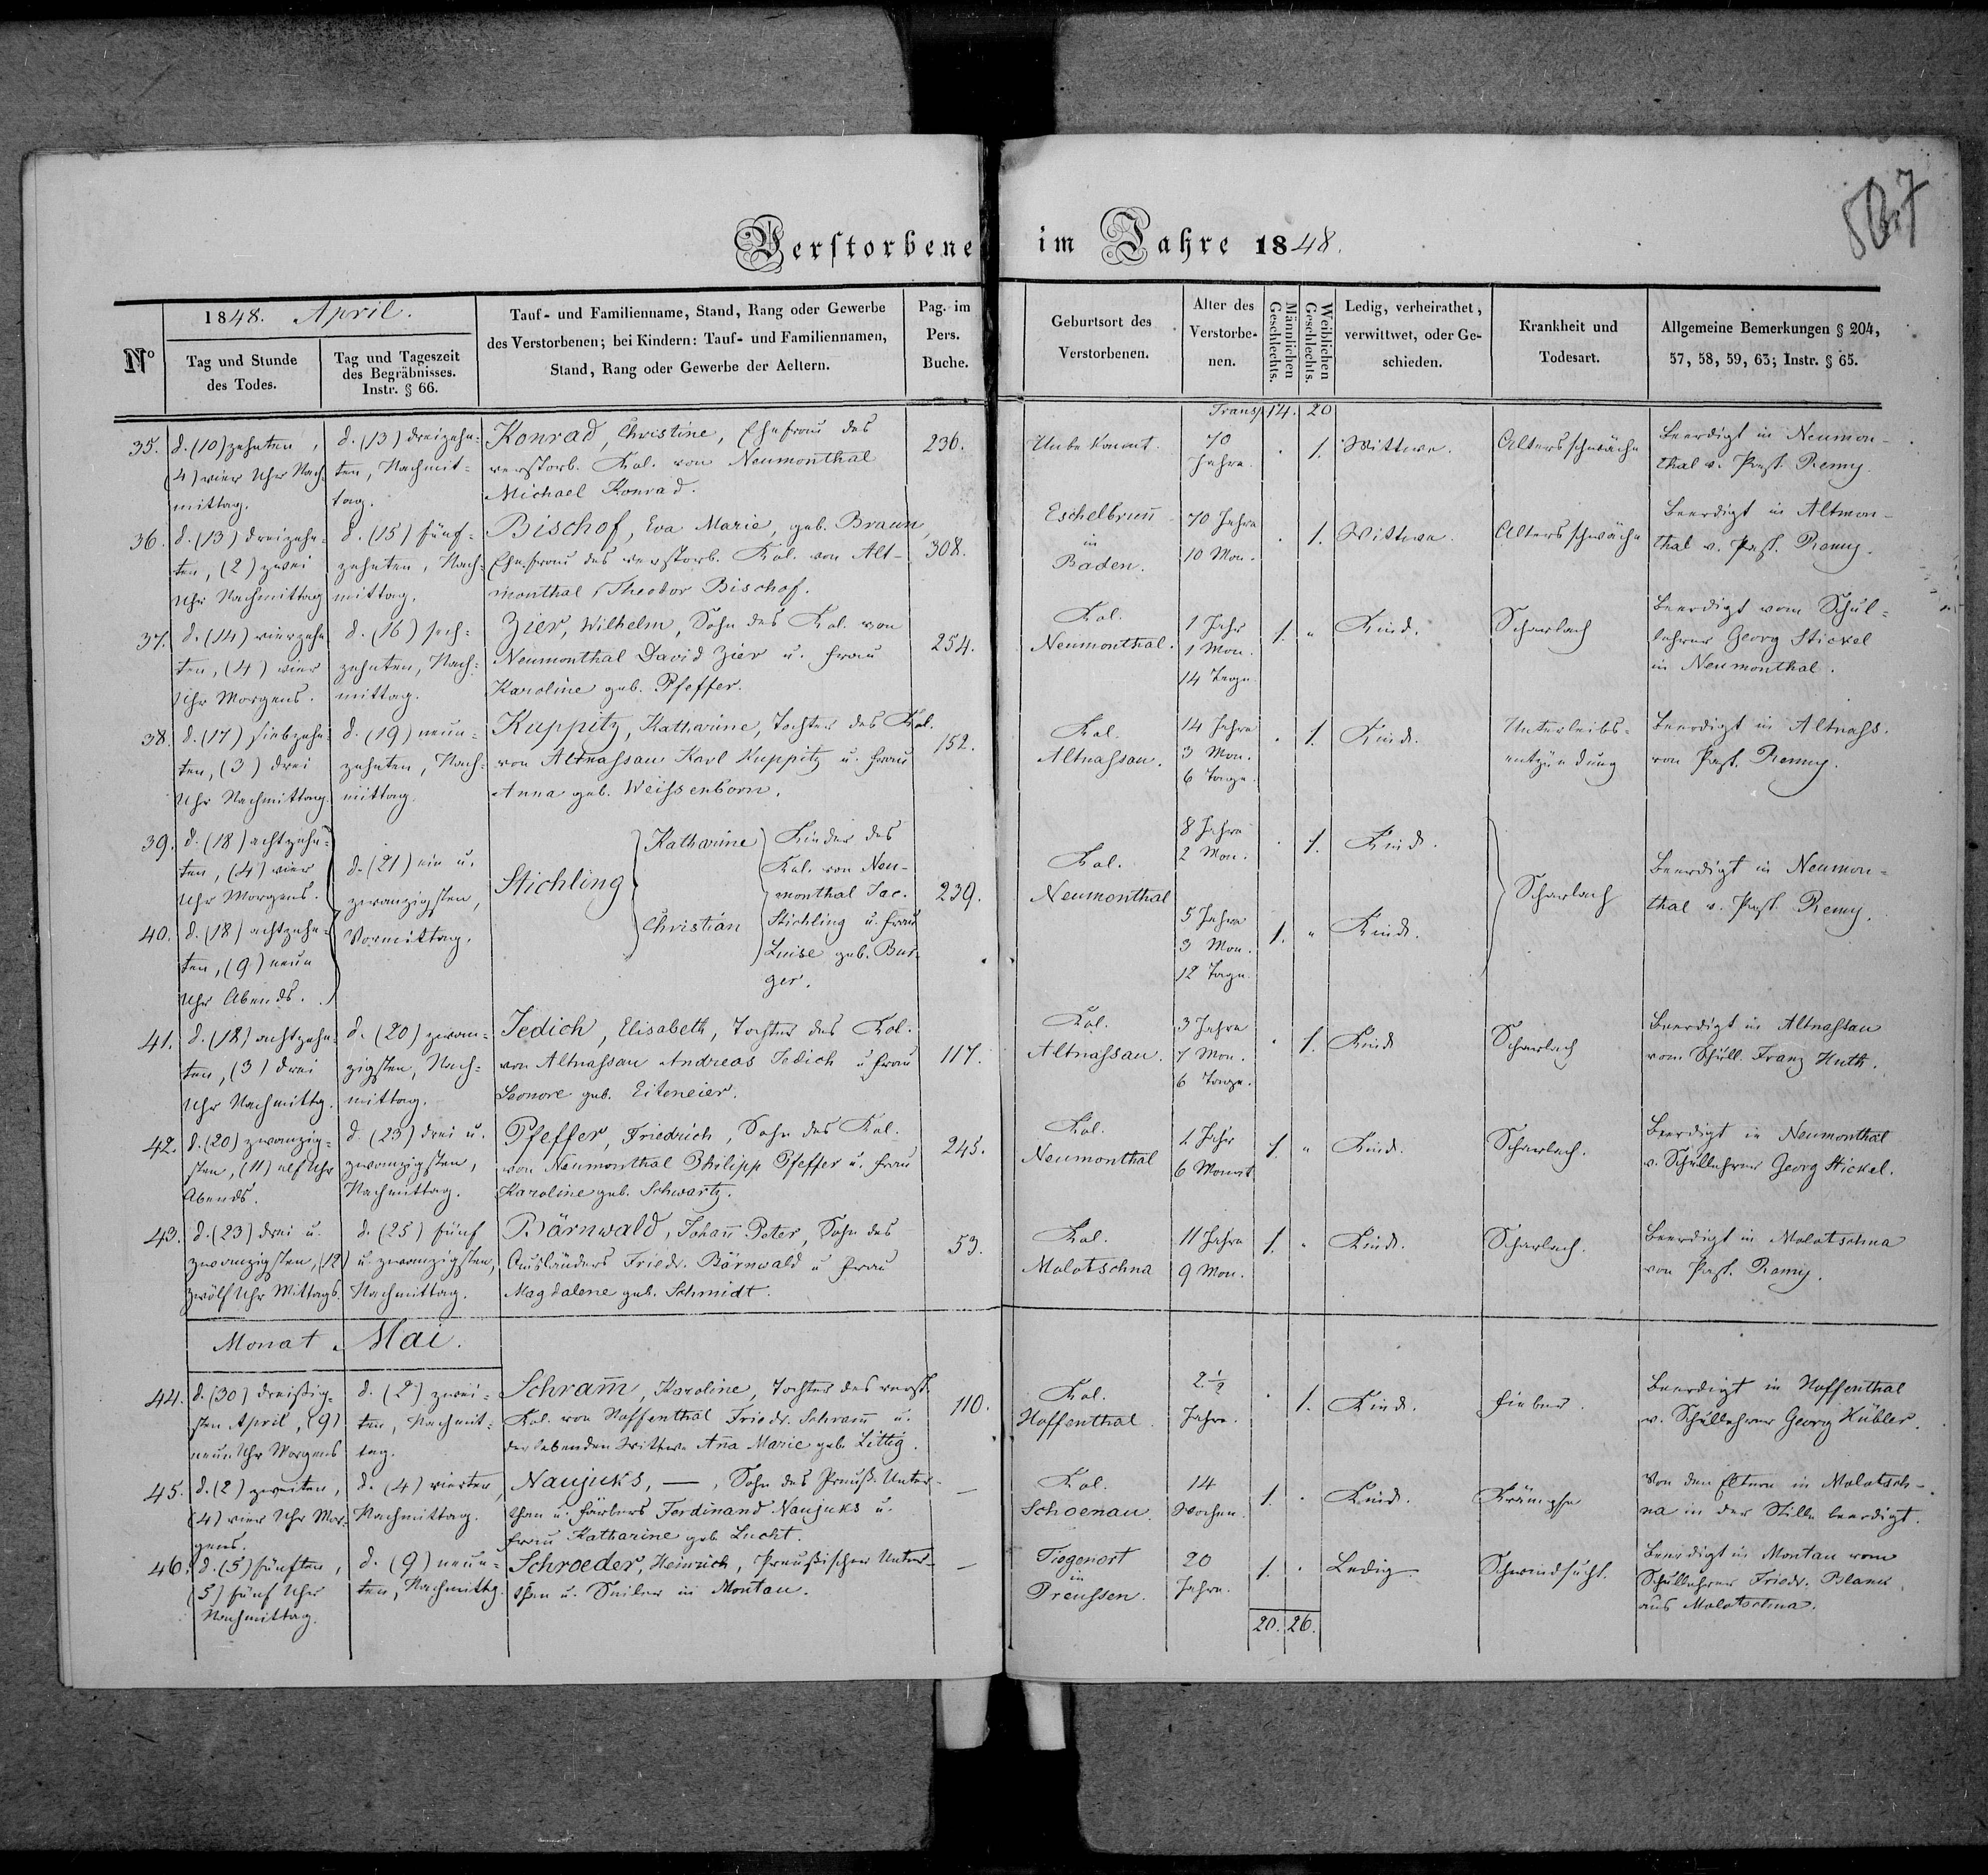 Verstorbene im Jahre 1848.
567
No
1848. April.
Tag und Stunde
des Todes.
Tag und Tageszeit
des Begräbnisses.
Instr. § 66.
Tauf- und Familienname, Stand, Rang oder Gewerbe
des Verstorbenen; bei Kindern: Tauf- und Familiennamen,
Stand, Rang oder Gewerbe der Aeltern.
Pag. im
Pers.
Buche.
Geburtsort des
Verstorbenen.
Alter des
Verstorbe-
nen.
Männlichen
Geschlechts.
Weiblichen
Geschlechts.
Ledig, verheirathet,
verwittwet, oder Ge-
schieden.
Krankheit und
Todesart.
Allgemeine Bemerkungen § 204,
57, 58, 59, 63; Instr. § 65.
Transp. 14. 20
35.
d. (10) zehnten,
(4) vier Uhr Nach-
mittag.
d. (13) dreizehn-
ten, Nachmit-
tag.
Konrad, Christine, Ehefrau des
verstorb. Kol. von Neumonthal
Michael Konrad.
236.
Unbekannt.
70
Jahre.
1.
Wittwe.
Altersschwäche
Beerdigt in Neumon-
thal v. Past. Remy.
36.
d. (13) dreizehn-
ten, (2) zwei
Uhr Nachmittag
d. (15) fünf-
zehnten, Nach-
mittag.
Bischof, Eva Marie, geb. Braun
Ehefrau des verstorb. Kol. von Alt-
monthal, Theodor Bischof.
308.
Eschelbrunn
in
Baden.
70 Jahre
10 Mon.
1.
Wittwe.
Altersschwäche
Beerdigt in Altmon-
thal v. Past. Remy.
37.
d. (14) vierzehn
ten, (4) vier
Uhr Morgens.
d. (16) sech-
zehnten, Nach-
mittag.
Zier, Wilhelm, Sohn des Kol. von
Neumonthal David Zier u. Frau
Karoline geb. Pfeffer.
254.
Kol.
Neumonthal.
1 Jahr
1 Mon.
14 Tage
1. "
Kind.
Scharlach
Beerdigt vom Schul-
lehrer Georg Stickel
in Neumonthal.
38.
d. (17) siebzehn-
ten, (3) drei
Uhr Nachmittag.
d. (19) neun-
zehnten, Nach-
mittag.
Kuppitz, Katharine, Tochter des Kol.
von Altnassau Karl Kuppitz u. Frau
Anna geb. Weissenborn.
152.
Kol.
Altnassau.
14 Jahre
3 Mon.
6 Tage.
1.
Kind.
Unterleibs-
entzündung
Beerdigt in Altnass.
von Past. Remy.
39.
d. (18) achtzehn-
ten, (4) vier
Uhr Morgens.
40.
d. (18) achtzehn-
ten, (9) neun
Uhr Abends.
d. (21) ein u.
zwanzigsten,
Vormittag.
Stichling
Katharine
Christian
Kinder des
Kol. von Neu-
monthal Jac.
Stichling u. Frau
Luise geb. Bur-
ger.
239.
Kol.
Neumonthal
8 Jahre
2 Mon.
1.
Kind.
5 Jahre
3 Mon.
12 Tage.
1. "
Kind.
Scharlach
Beerdigt in Neumon-
thal v. Past. Remy.
41.
d. (18) achtzehn-
ten, (3) drei
Uhr Nachmittg.
d. (20) zwan-
zigsten, Nach-
mittag.
Jedich, Elisabeth, Tochter des Kol.
von Altnassau Andreas Jedich u Frau
Leonore geb. Eiteneier.
117.
Kol.
Altnassau.
3 Jahre
7 Mon.
6 Tage.
1.
Kind
Scharlach
Beerdigt in Altnassau
vom Schull. Franz Huth.
42.
d. (20) zwanzig-
sten, (11) elf Uhr
Abends.
d. (23) drei u.
zwanzigsten,
Nachmittag.
Pfeffer, Friedrich, Sohn des Kol.
von Neumonthal Philipp Pfeffer u. Frau
Karoline geb. Schwartz.
245.
Kol.
Neumonthal
1 Jahr
6 Monat
1. "
Kind.
Scharlach.
Beerdigt in Neumonthal
v. Schullehrer Georg Stickel.
43.
d. (23) drei u.
zwanzigsten, (12)
zwölf Uhr Mittags.
d. (25) fünf
u. zwanzigsten,
Nachmittag.
Bärnwald, Johann Peter, Sohn des
Ausländers Friedr. Bärnwald u Frau
Magdalene geb. Schmidt.
53.
Kol.
Molotschna
11 Jahre
9 Mon.
1. "
Kind.
Scharlach.
Beerdigt in Molotschna
von Past. Remy.
Monat Mai.
44.
d. (30) dreissig-
sten April, (9)
neun Uhr Morgens
d. (2) zwei-
ten, Nachmit-
tag.
Schramm, Karoline, Tochter des verst.
Kol. von Hoffenthal Friedr. Schramm u.
der lebenden Wittwe Anna Marie geb. Littig.
110.
Kol.
Hoffenthal.
2 1/2
Jahre.
1.
Kind.
Fieber.
Beerdigt in Hoffenthal
v. Schullehrer Georg Hübler.
45.
d. (2) zweiten,
(4) vier Uhr Mor-
gens.
d. (4) vierten
Nachmittag.
Naujuks, —, Sohn des Preuss. Unter-
than u. Färbers Ferdinand Naujuks u.
Frau Katharine geb. Lucht.
—
Kol.
Schoenau.
14
Wochen
1.
Kind.
Krämpfe
Von den Eltern in Molotsch-
na in der Stille beerdigt.
46.
d. (5) fünften,
(5) fünf Uhr
Nachmittag.
d. (9) neun-
ten, Nachmittg.
Schroeder, Heinrich, Preussischer Unter-
than u. Seiler in Montau.
—
Tiegenort
in
Preussen.
20
Jahre.
1.
Ledig
Schwindsucht.
Beerdigt in Montau vom
Schullehrer Friedr. Blank
aus Molotschna.
20. 26.